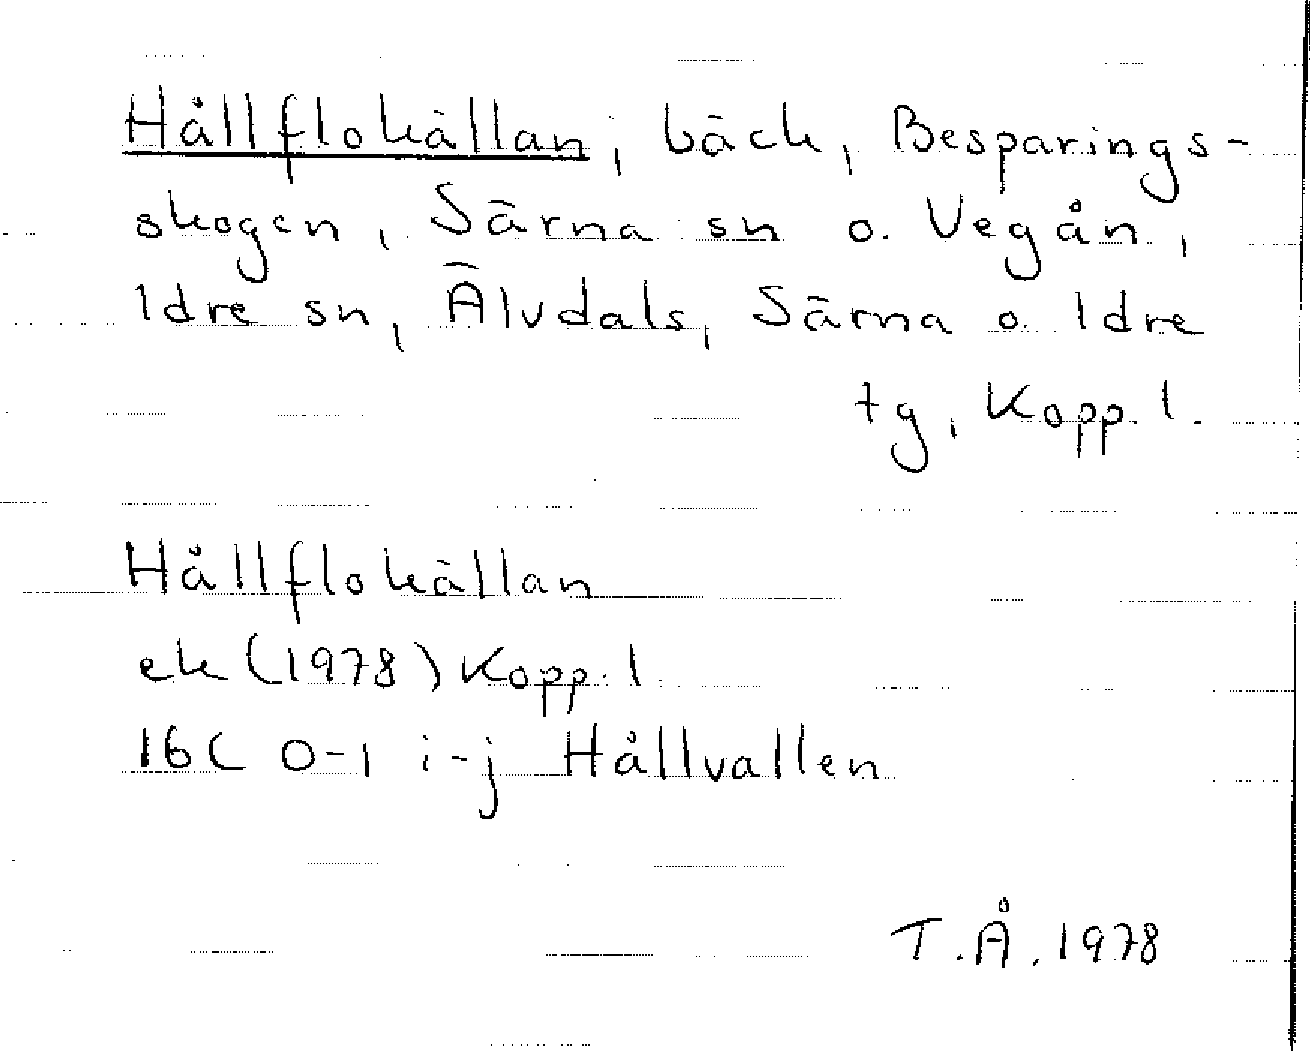 Hållflokällan, bäck, Besparings-
skogen, Särna sn o. Vegån,
Idre sn, Älvdals, Särna o. Idre
tg, Kopp. l.
Hållflokällan
ek (1978) Kopp. l.
16C 0-1 i-j Hållvallen
T.Å. 1978